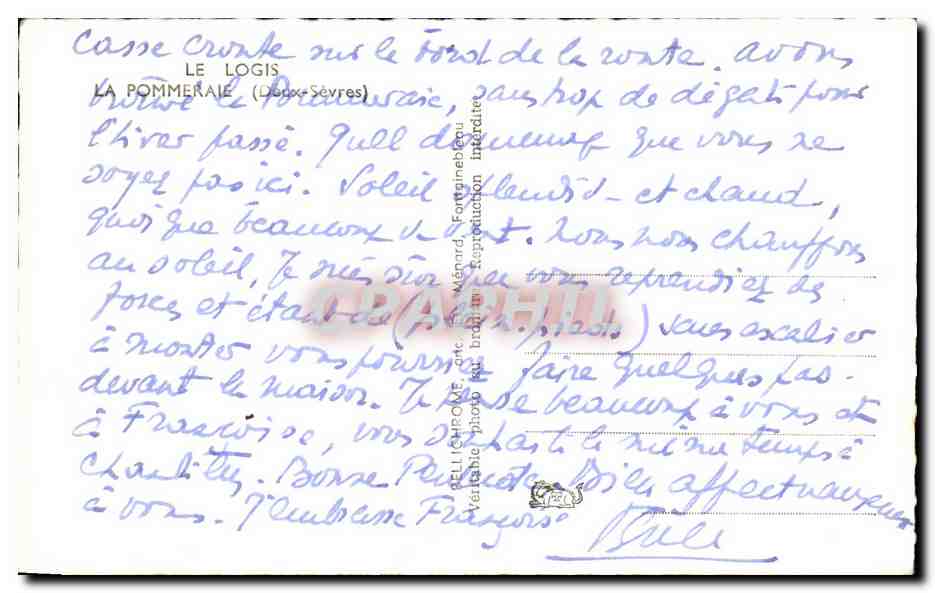 casse croute sur le bord de la route. avons
LE LOGIS
LA POMMERAIE (Deux-Sèvres)
trouvé la Pommeraie, sans trop de dégats pour
l'hiver passé. Quel dommage que vous ne
soyez pas ici. Soleil splendide et chaud,
quoique beaucoup de vent. Nous nous chauffons
au soleil. Je suis sûr que vous reprendrez des
forces et étant de sans escalier
à monter vous pourriez faire quelques pas
devant la maison. Je pense beaucoup à vous et
à Françoise, vous le même temps à
Chantilly. Bonne Pentecôte. Bien affectueusement
à vous. J'embrasse Françoise
PELLICHROME, Ménard, Fontainebleau
Véritable photo au bromure Reproduction interdite
CPAPHIL